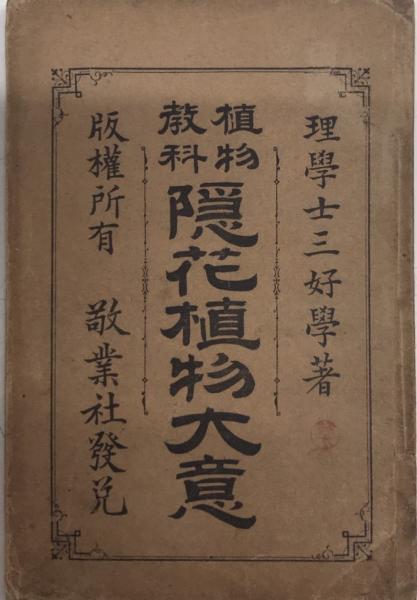 理學士三好學著
植物
教科
隠花植物大意
版權所有
敬業社發兌